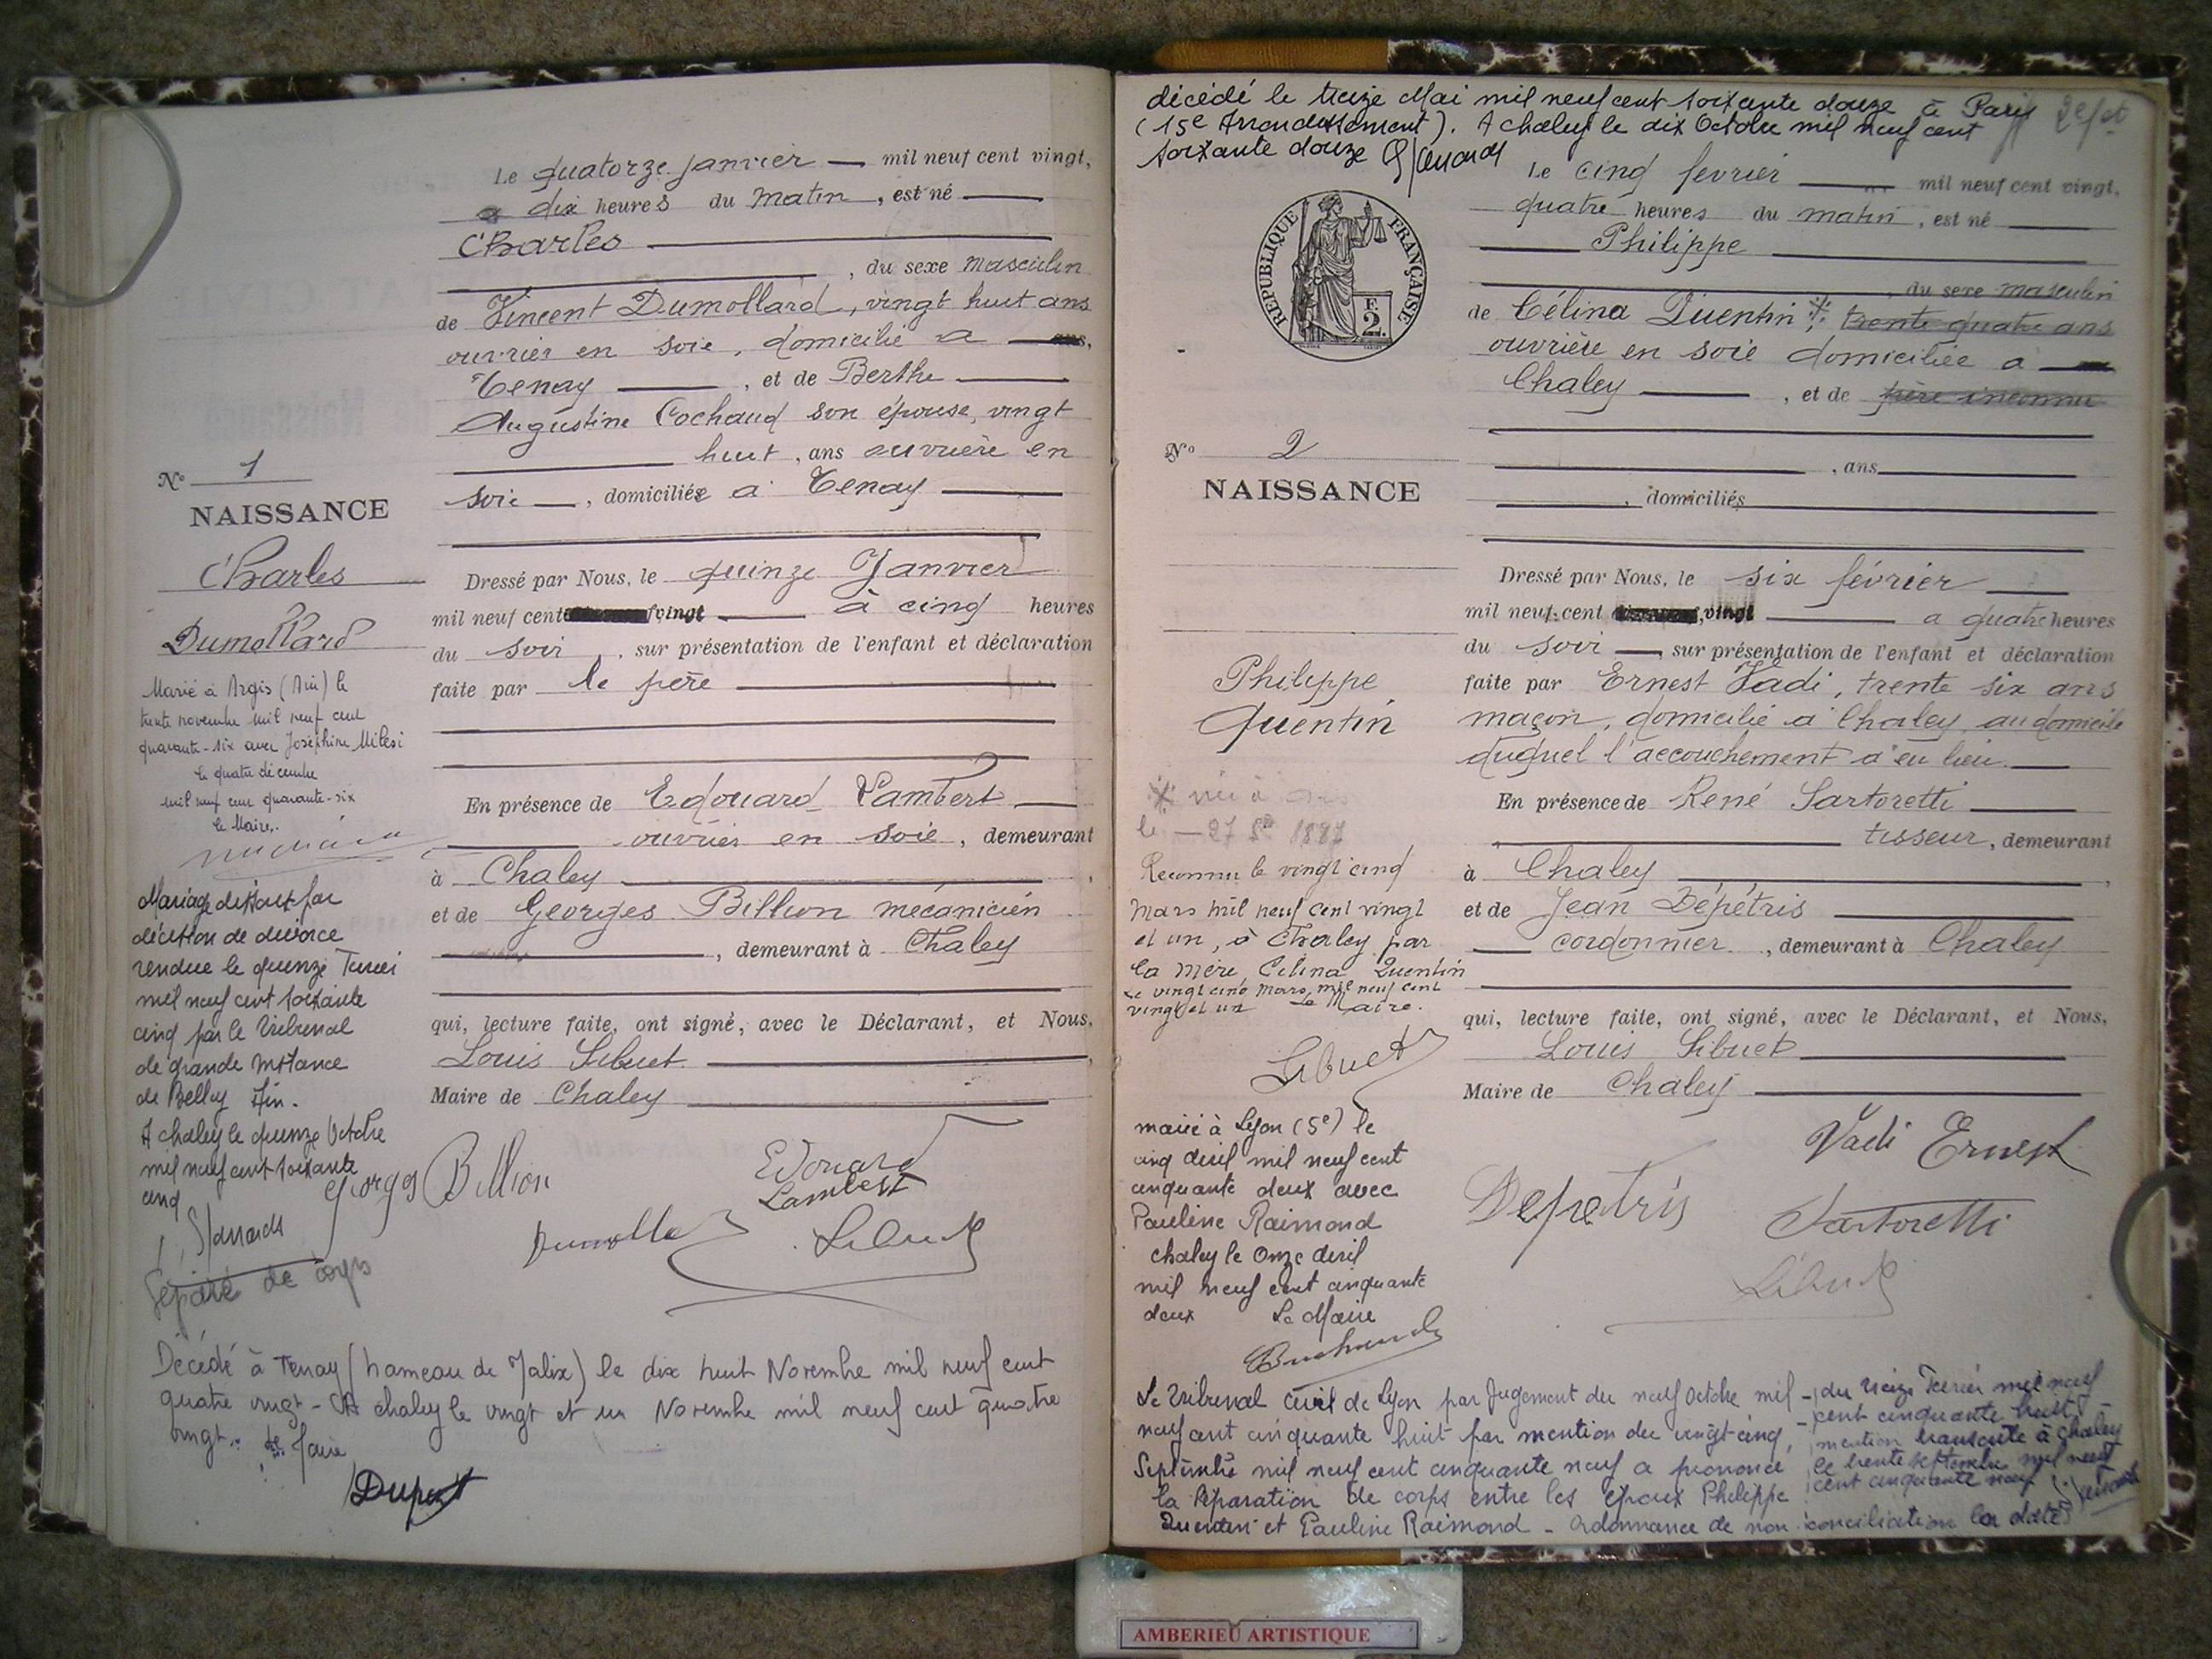 Le quatorze janvier mil neuf cent vingt,
a dix heures du matin, est né
Charles
, du sexe masculin
de Vincent Dumollard, vingt huit ans
ouvrier en soie, domicilié a
Tenay, et de Berthe
Augustine Cochaud son épouse, vingt
huit, ans ouvrière en
soie, domiciliée a Tenay
N° 1
NAISSANCE
Charles
Dumollard
Dressé par Nous, le quinze Janvier
mil neuf cent vingt à cinq heures
du soir, sur présentation de l'enfant et déclaration
faite par le père
En présence de Edouard Lambert
ouvrier en soie, demeurant
à Chaley
et de Georges Billion mécanicien
, demeurant à Chaley
qui, lecture faite, ont signé, avec le Déclarant, et Nous,
Louis Sibuet
Maire de Chaley
Marié à Argis (Ain) le
trente novembre mil neuf cent
quarante-six avec Joséphine Milesi
le quatre décembre
mil neuf cent quarante-six
le Maire,
Mariage dissout par
décision de divorce
rendue le quinze
mil neuf cent soixante
cinq par le Tribunal
de grande instance
de Belley Ain.
A chaley le quinze Octobre
mil neuf cent soixante
cinq
Séparé de corps
Georges Billion
Edouard
Lambert
Dumollard
Sibuet
Décédé à Tenay (hameau de Malix) le dix huit Novembre mil neuf cent
quatre vingt - A chaley le vingt et un Novembre mil neuf cent quatre
vingt. le Maire
Dupont
décédé le treize Mai mil neuf cent soixante douze à Paris
(15e Arrondissement). A chaley le dix Octobre mil neuf cent
soixante douze
Le cinq fevrier mil neuf cent vingt,
quatre heures du matin, est né
Philippe
, du sexe masculin
de Célina Quentin * trente quatre ans
ouvrière en soie domiciliée a
Chaley, et de père inconnu
, ans
, domiciliés
REPUBLIQUE FRANÇAISE
E
2.
N° 2
NAISSANCE
Philippe
Quentin
Dressé par Nous, le six février
mil neuf cent vingt a quatre heures
du soir, sur présentation de l'enfant et déclaration
faite par Ernest Vadi, trente six ans
maçon, domicilié a Chaley, au domicile
duquel l'accouchement a eu lieu.
En présence de René Sartoretti
tisseur, demeurant
à Chaley
et de Jean Dépétris
cordonnier, demeurant à Chaley
qui, lecture faite, ont signé, avec le Déclarant, et Nous,
Louis Sibuet
Maire de Chaley
Vadi Ernest
Depetris
Sartoretti
Sibuet
Reconnu le vingt cinq
Mars mil neuf cent vingt
et un, à Chaley par
la mère, Célina Quentin
Le vingt cinq Mars mil neuf cent
vingt et un Le Maire.
Sibuet
marié à Lyon (5e) le
cinq avril mil neuf cent
cinquante deux avec
Pauline Raimond
chaley le onze avril
mil neuf cent cinquante
deux Le Maire
Le Tribunal civil de Lyon par Jugement du neuf Octobre mil
neuf cent cinquante huit par mention du vingt-cinq
Septembre mil neuf cent cinquante neuf a prononcé
la séparation de corps entre les époux Philippe
Quentin et Pauline Raimond - Ordonnance de non conciliation à la date
du treize Février mil neuf
cent cinquante huit
mention transcrite à chaley
le trente septembre mil neuf
cent cinquante neuf
AMBERIEU ARTISTIQUE